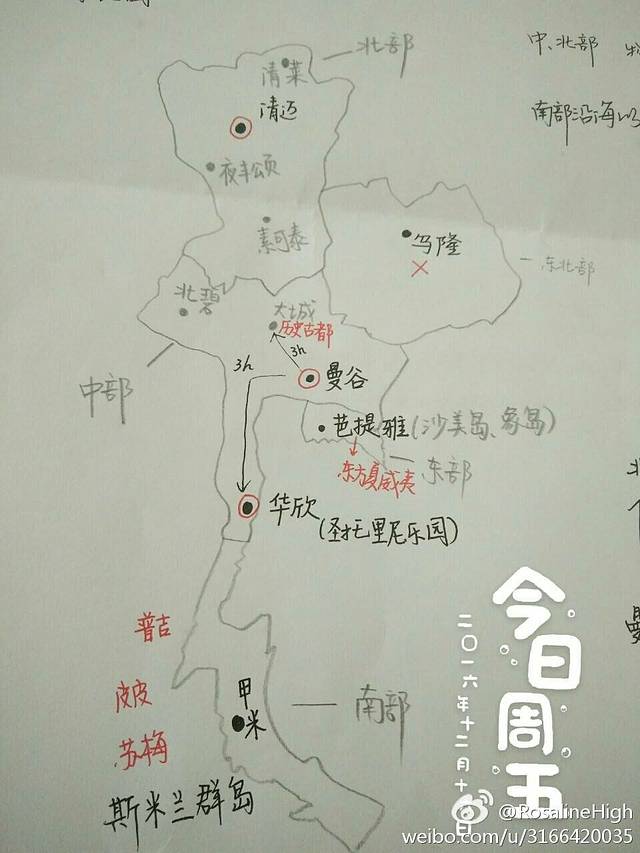 北部
中、北部
清莱
清迈
南部沿海以
夜丰颂
素可泰
乌隆
东北部
北碧
大城
历史古都
3h
3h
曼谷
中部
芭提雅(沙美岛、象岛)
东部
东方夏威夷
华欣
(圣托里尼乐园)
普吉
皮皮
甲米
南部
苏梅
斯米兰群岛
曼
今日周五
二〇一六年十二月十日
@RosalineHigh
weibo.com/u/3166420035